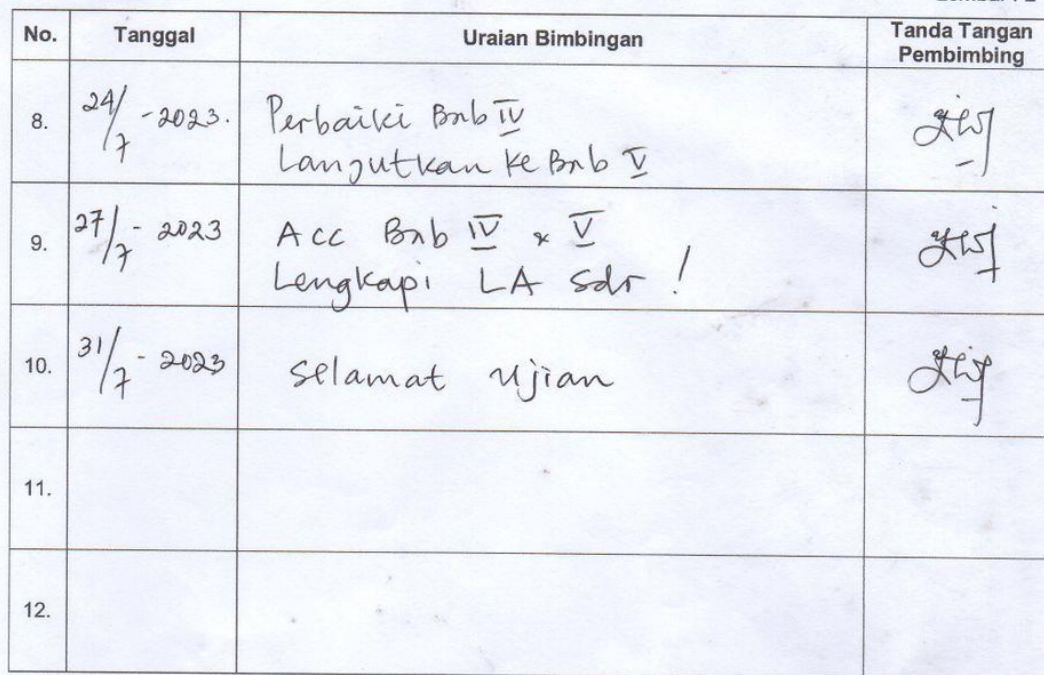 No. Tanggal Uraian Bimbingan Tanda Tangan
Pembimbing
8. 24/7 - 2023. Perbaiki Bab IV
Lanjutkan ke Bab V
9. 27/7 - 2023 Acc Bab IV & V
Lengkapi LA Sdr !
10. 31/7 - 2023 selamat ujian
11.
12.